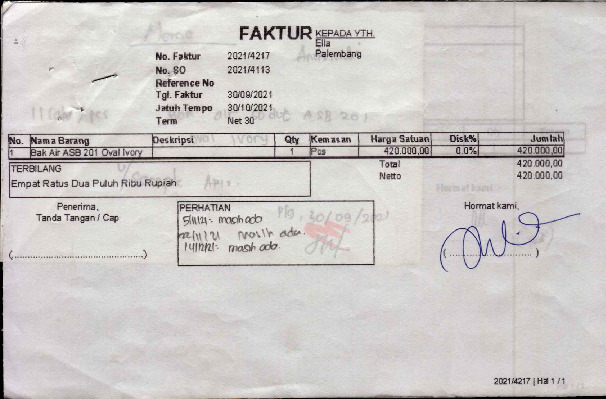 FAKTUR
KEPADA YTH.
Ella
Palembang
No. Faktur 2021/4217
No. SO 2021/4113
Reference No
Tgl. Faktur 30/09/2021
Jatuh Tempo 30/10/2021
Term Net 30
No. Nama Barang Deskripsi Qty Kemasan Harga Satuan Disk% Jumlah
1 Bak Air ASB 201 Oval Ivory 1 Pcs 420.000,00 0.0% 420.000,00
Total 420.000,00
Netto 420.000,00
TERBILANG
Empat Ratus Dua Puluh Ribu Rupiah
Penerima,
Tanda Tangan / Cap
(................................................)
PERHATIAN
5/11/21: masih ada
22/11/21 masih ada.
14/12/21: masih ada.
Plg, 30/09/2021
Hormat kami,
(................................)
2021/4217 | Hal 1 / 1